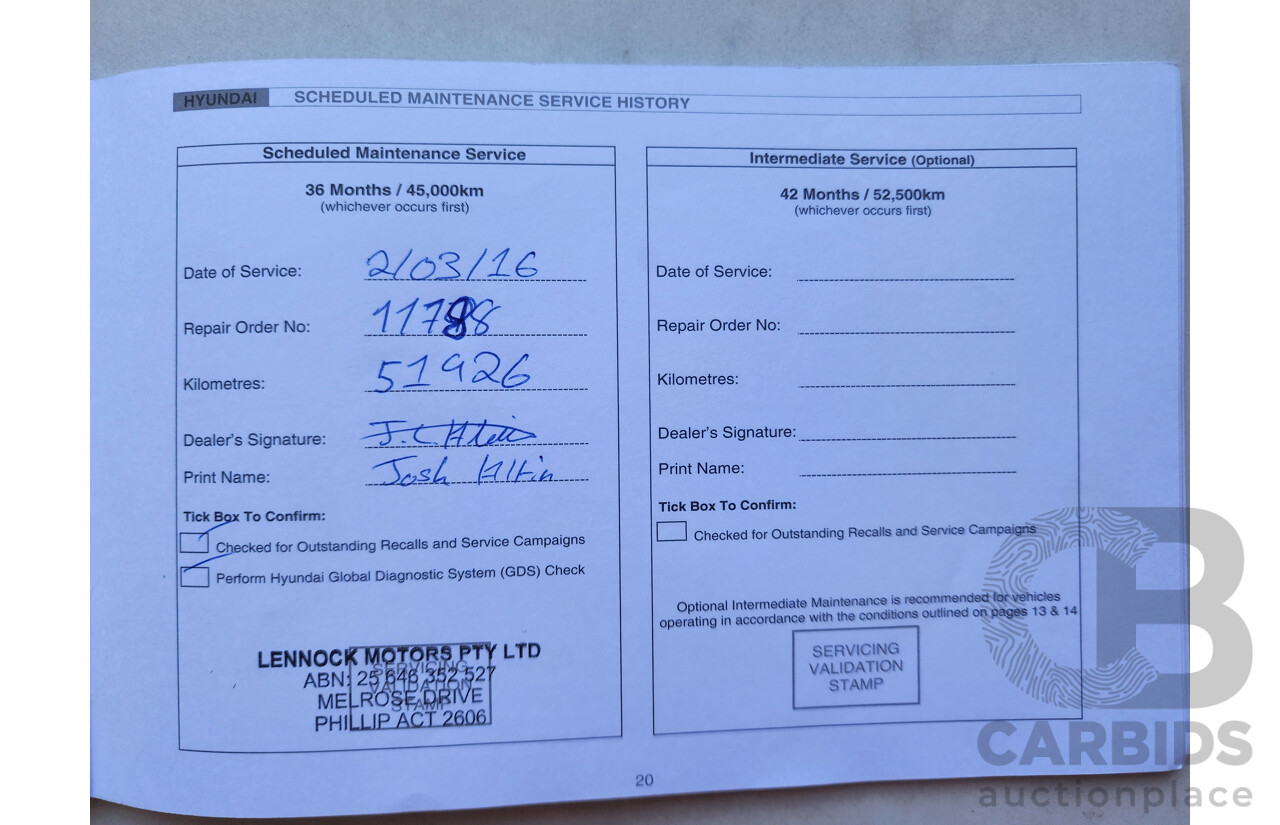 HYUNDAI SCHEDULED MAINTENANCE SERVICE HISTORY
Scheduled Maintenance Service
36 Months / 45,000km
(whichever occurs first)
Date of Service: 2/03/16
Repair Order No:
Kilometres: 51926
Dealer's Signature:
Print Name: Josh
Tick Box To Confirm:
Checked for Outstanding Recalls and Service Campaigns
Perform Hyundai Global Diagnostic System (GDS) Check
SERVICING
VALIDATION
STAMP
LENNOCK MOTORS PTY LTD
ABN: 25 646 352 527
MELROSE DRIVE
PHILLIP ACT 2606
Intermediate Service (Optional)
42 Months / 52,500km
(whichever occurs first)
Date of Service:
Repair Order No:
Kilometres:
Dealer's Signature:
Print Name:
Tick Box To Confirm:
Checked for Outstanding Recalls and Service Campaigns
Optional Intermediate Maintenance is recommended for vehicles
operating in accordance with the conditions outlined on pages 13 & 14
SERVICING
VALIDATION
STAMP
20
CB
CARBIDS
auctionplace